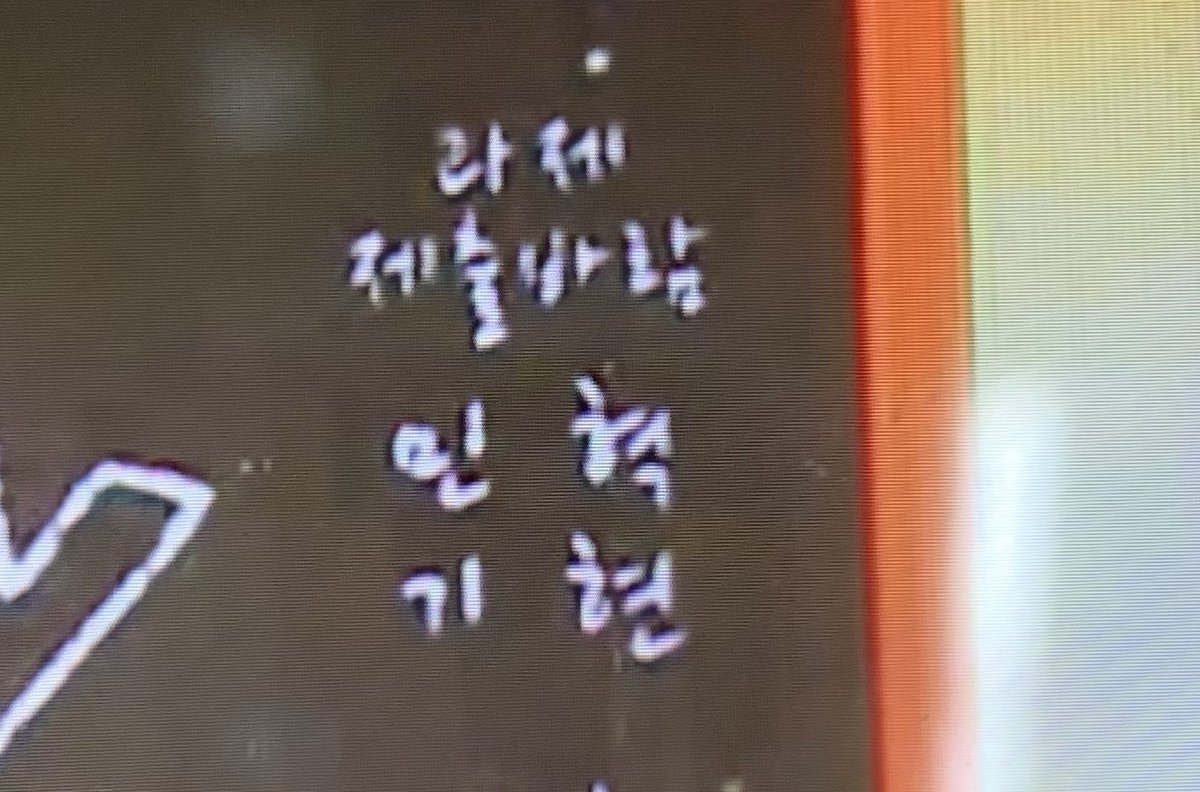 과제
제출바람
인 혁
기 현